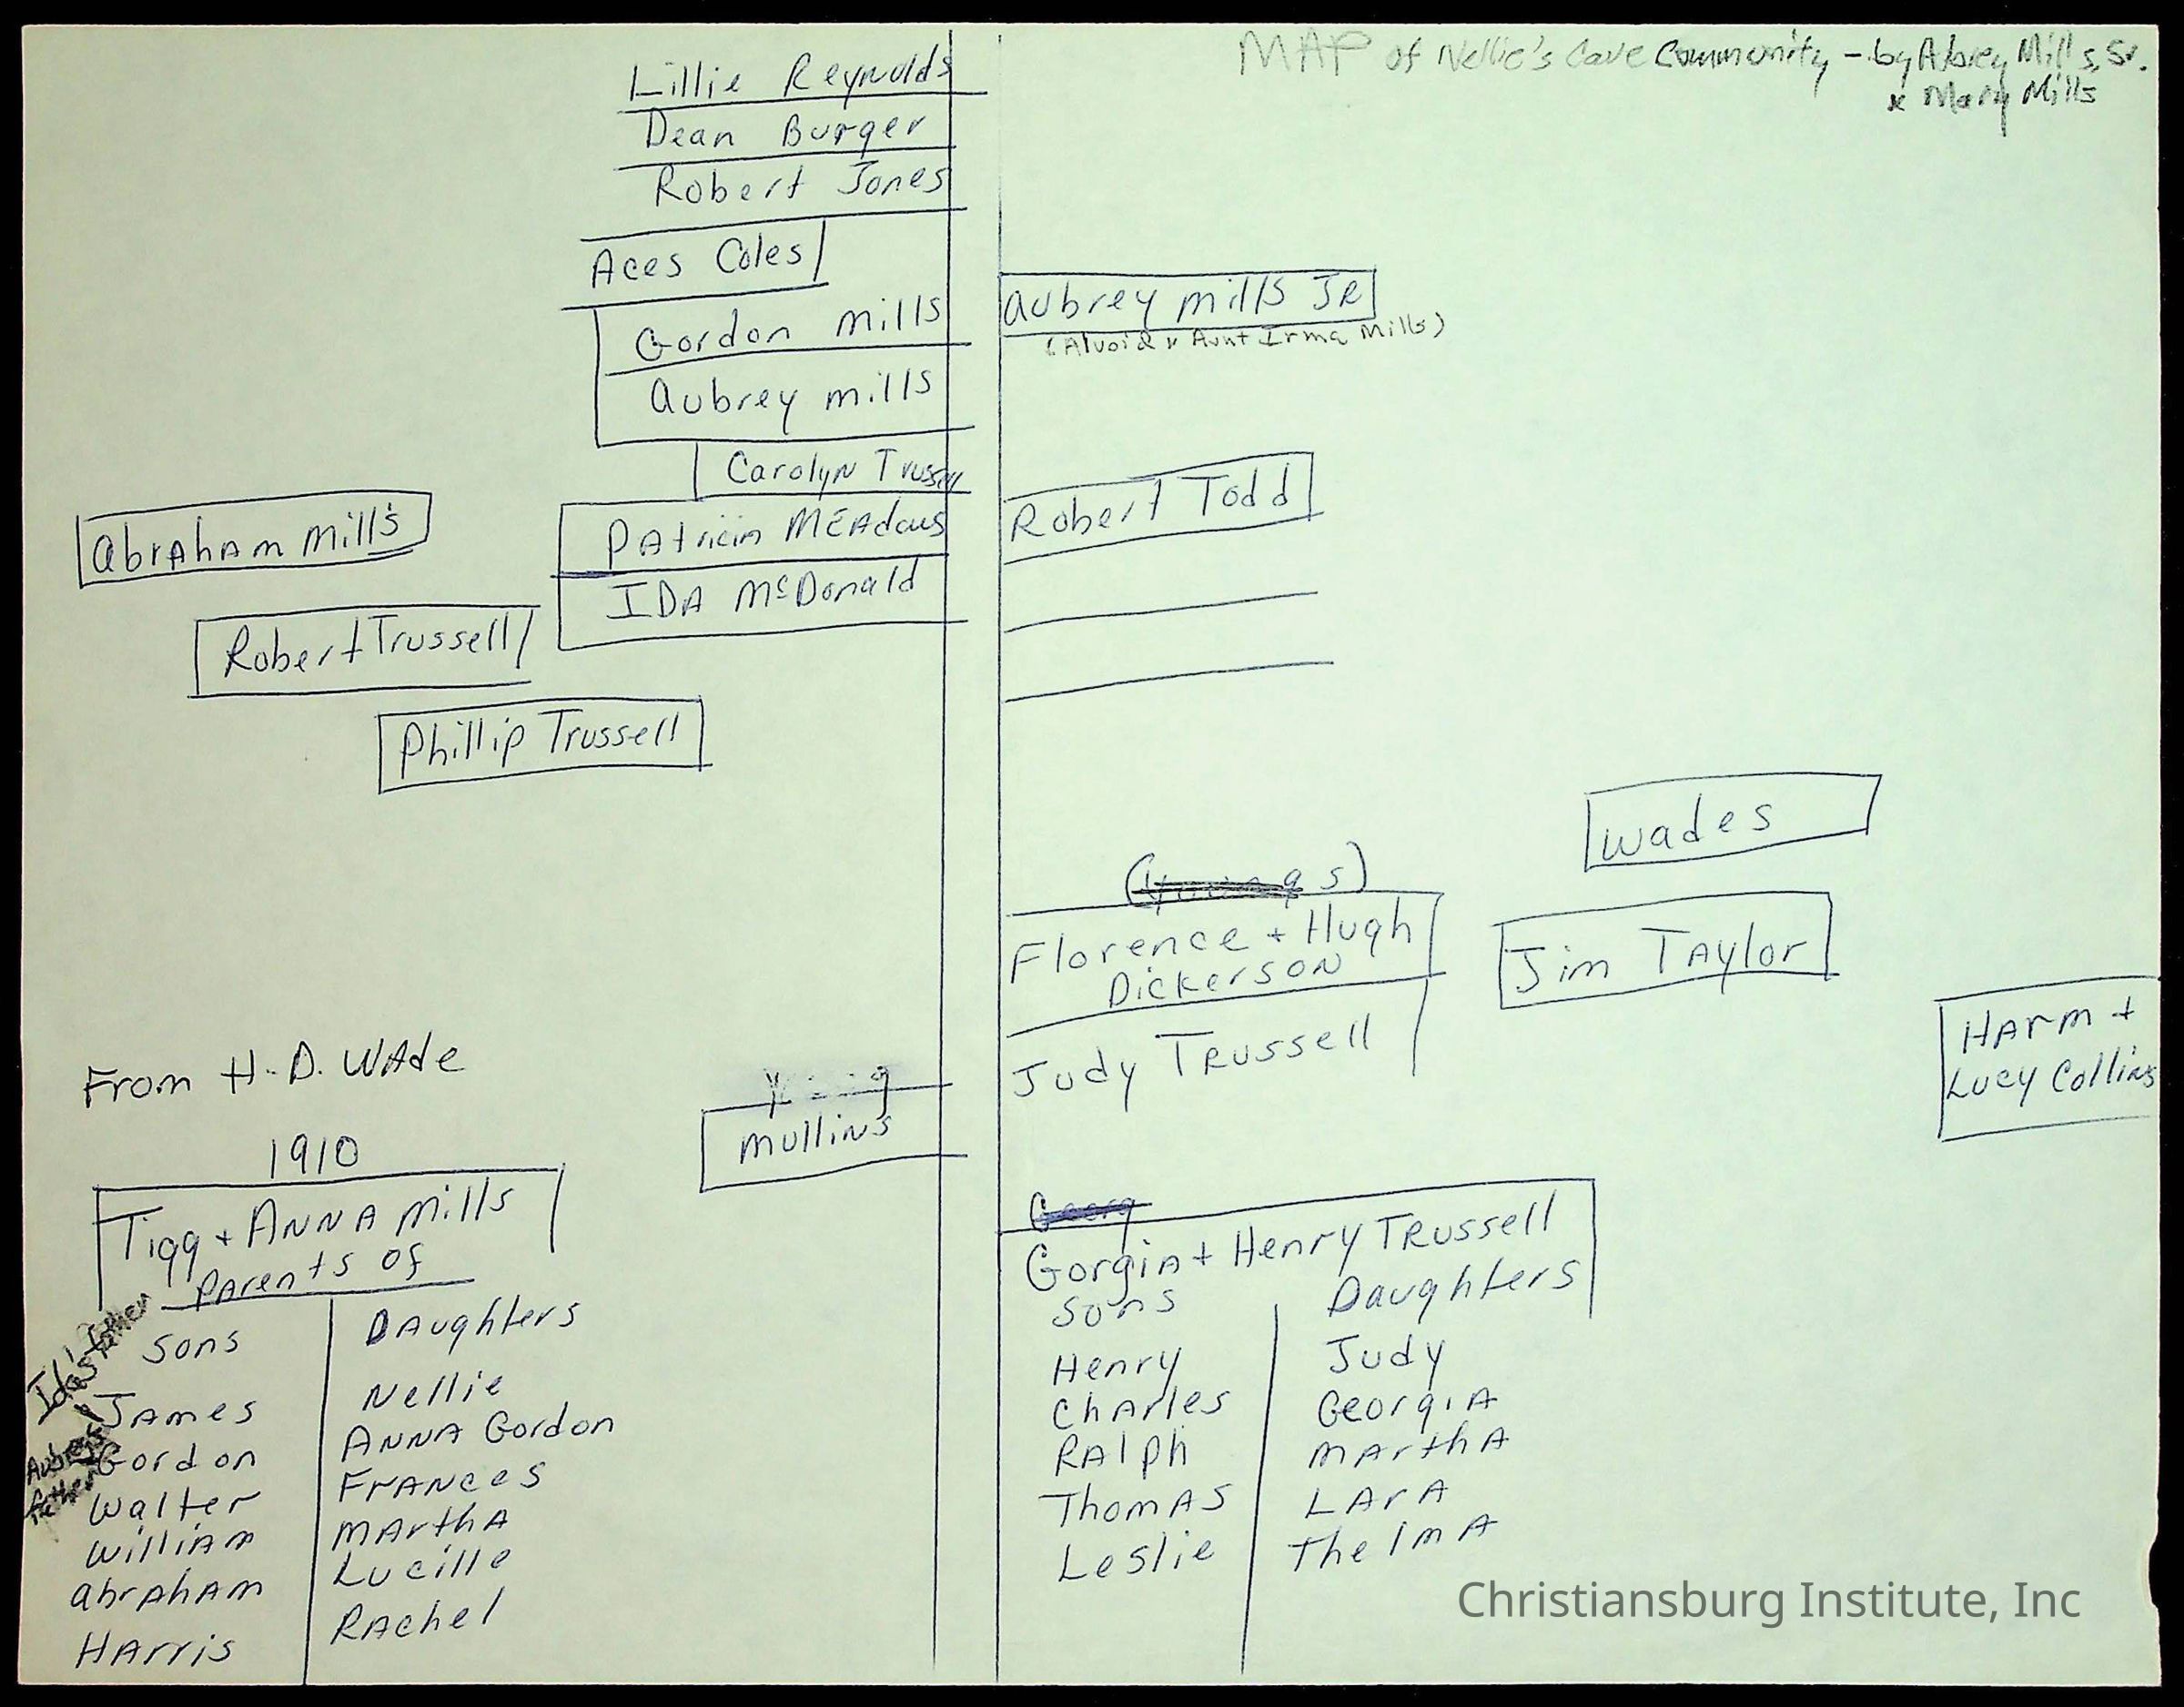 MAP of Nellie's Cave Community - by Abrey Mills, Sr.
& Mary Mills
Lillie Reynolds
Dean Burger
Robert Jones
Aces Coles
Gordon Mills
Aubrey Mills
Carolyn Trussell
Patricia MEAdows
IDA McDonald
Abraham Mills
Robert Trussell
Phillip Trussell
Aubrey Mills JR
(Alvoid & Aunt Irma Mills)
Robert Todd
Wades
(Youngs)
Florence + Hugh
Dickerson
Jim Taylor
Judy Trussell
Harm +
Lucy Collins
From H.D. Wade
Mullins
1910
Tigg + Anna Mills
Parents of
Sons
James
Gordon
Walter
William
Abraham
Harris
Daughters
Nellie
Anna Gordon
Frances
Martha
Lucille
Rachel
Ida's Father
Aubrey's
Father
Georg
Gorgia + Henry Trussell
Sons
Henry
Charles
Ralph
Thomas
Leslie
Daughters
Judy
Georgia
Martha
Lara
Thelma
Christiansburg Institute, Inc